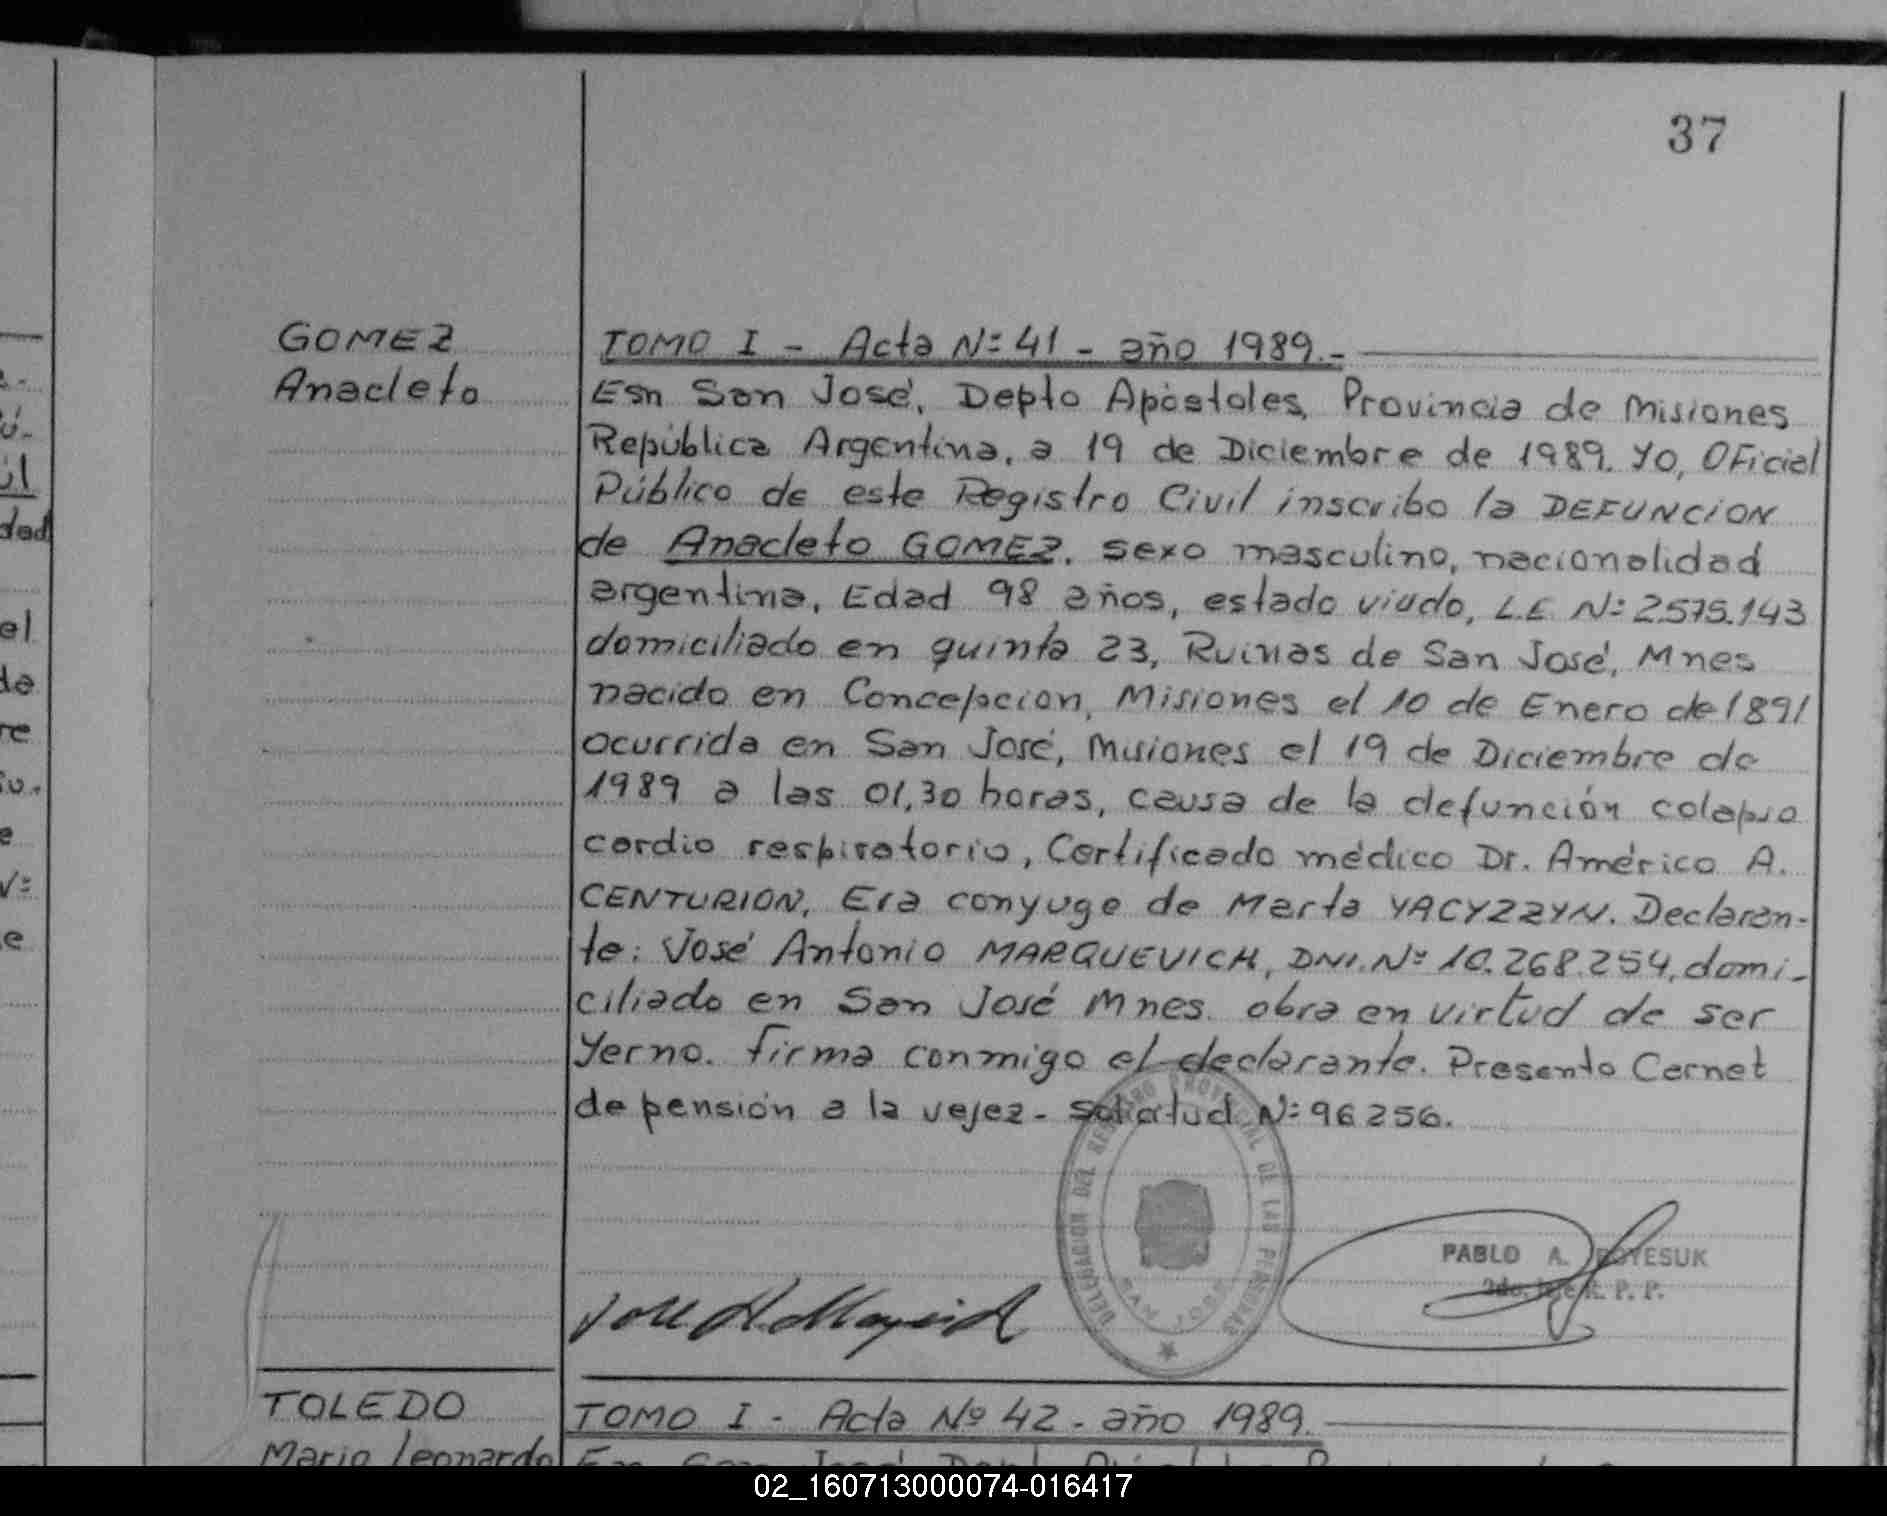 37
GOMEZ
Anacleto
TOMO I - Acta Nº 41 - año 1989.-
En San José, Depto Apóstoles, Provincia de Misiones
República Argentina, a 19 de Diciembre de 1989. Yo, Oficial
Público de este Registro Civil inscribo la DEFUNCION
de Anacleto GOMEZ. sexo masculino, nacionalidad
argentina, Edad 98 años, estado viudo, L.E. Nº 2.575.143
domiciliado en quinta 23, Ruinas de San José, Mnes
nacido en Concepcion, Misiones el 10 de Enero de 1891
ocurrida en San José, Misiones el 19 de Diciembre de
1989 a las 01,30 horas, causa de la defunción colapso
cardio respiratorio, Certificado médico Dr. Américo A.
CENTURION, Era conyuge de Marta YACYZZYN. Declaran-
te: José Antonio MARQUEVICH, DNI. Nº 10.268.254, domi-
ciliado en San José Mnes. obra en virtud de ser
Yerno. firma conmigo el declarante. Presento Carnet
de pensión a la vejez - solicitud Nº 96256.
DELEGACION DEL REGISTRO PROVINCIAL DE LAS PERSONAS
SAN JOSE
PABLO A. BOYESUK
R. P. P.
TOLEDO
Mario Leonardo
TOMO I - Acta Nº 42 - año 1989.
En San José Dept
el
re
e
02_160713000074-016417